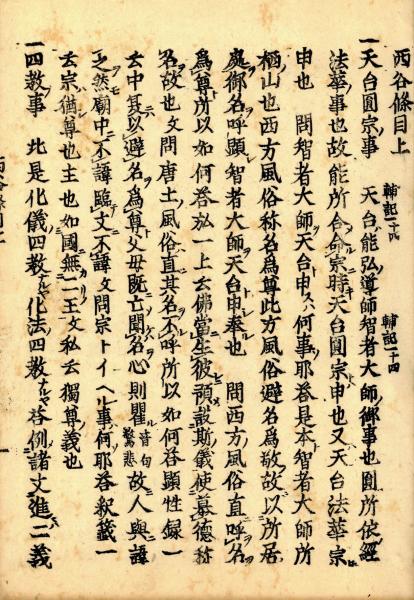 西谷條目上
輔記一十六　輔記一一十四
一天台圓宗事　天台ノ能弘ノ導師智者大師ノ御事也圓ノ所依ノ經
法華ノ事也故能所合シテ命宗時天台圓宗申也又天台法華宗
申也　問智者大師天台申ス何事耶荅是本智者大師所
栖山也西方風俗称名爲尊此方風俗避名爲敬故以所居
處御名呼顕智者大師天台申奉也　問西方風俗直呼名
爲尊所以如何荅弘一上云佛當生彼預設斯儀使慕德称
名故也文問唐土風俗直其名不呼所以如何荅顕性録一
云中夏以避名爲尊父母既亡聞名心則瞿音句驚悲故人與諱
之然廟中不諱臨文不諱文問宗トイヘル事何耶荅釈籤一
云宗猶尊也主也如國無二王文私云獨尊義也
一四教事　此是化儀四教化法四教荅例諸文進二義